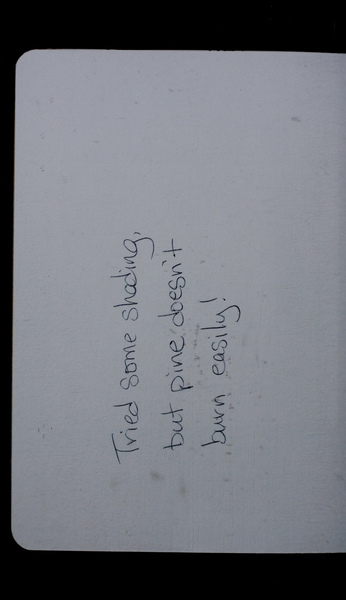 Tried some shading,
but pine doesn't
burn easily!